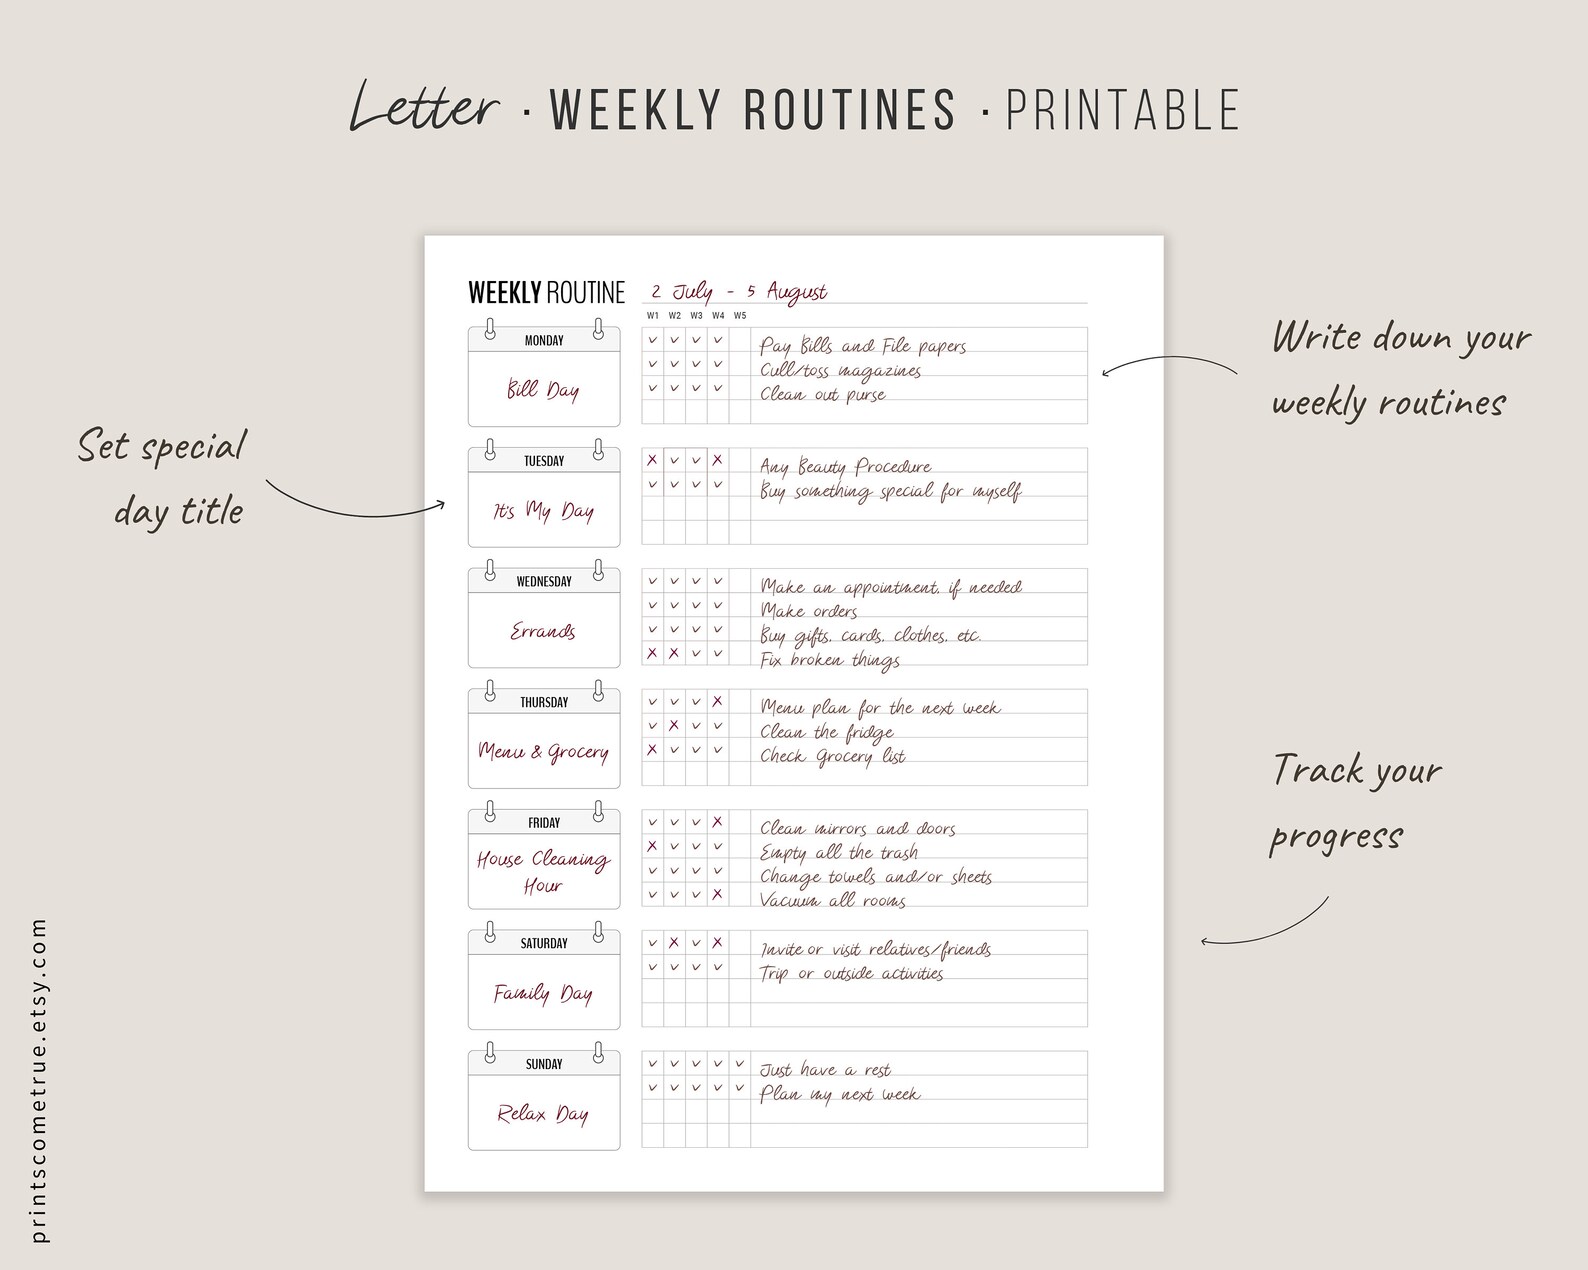 Letter · WEEKLY ROUTINES · PRINTABLE
WEEKLY ROUTINE 2 July - 5 August
W1 W2 W3 W4 W5
MONDAY
Bill Day
✓ ✓ ✓ ✓ Pay Bills and File papers
✓ ✓ ✓ ✓ Cull/toss magazines
✓ ✓ ✓ ✓ Clean out purse
TUESDAY
It's My Day
X ✓ ✓ X Any Beauty Procedure
✓ ✓ ✓ ✓ Buy something special for myself
WEDNESDAY
Errands
✓ ✓ ✓ ✓ Make an appointment, if needed
✓ ✓ ✓ ✓ Make orders
✓ ✓ ✓ ✓ Buy gifts, cards, clothes, etc.
X X ✓ ✓ Fix broken things
THURSDAY
Menu & Grocery
✓ ✓ ✓ X Menu plan for the next week
✓ X ✓ ✓ Clean the fridge
X ✓ ✓ ✓ Check Grocery list
FRIDAY
House Cleaning
Hour
✓ ✓ ✓ X Clean mirrors and doors
X ✓ ✓ ✓ Empty all the trash
✓ ✓ ✓ ✓ Change towels and/or sheets
✓ ✓ ✓ X Vacuum all rooms
SATURDAY
Family Day
✓ X ✓ X Invite or visit relatives/friends
✓ ✓ ✓ ✓ Trip or outside activities
SUNDAY
Relax Day
✓ ✓ ✓ ✓ ✓ Just have a rest
✓ ✓ ✓ ✓ ✓ Plan my next week
Set special
day title
Write down your
weekly routines
Track your
progress
printscometrue.etsy.com